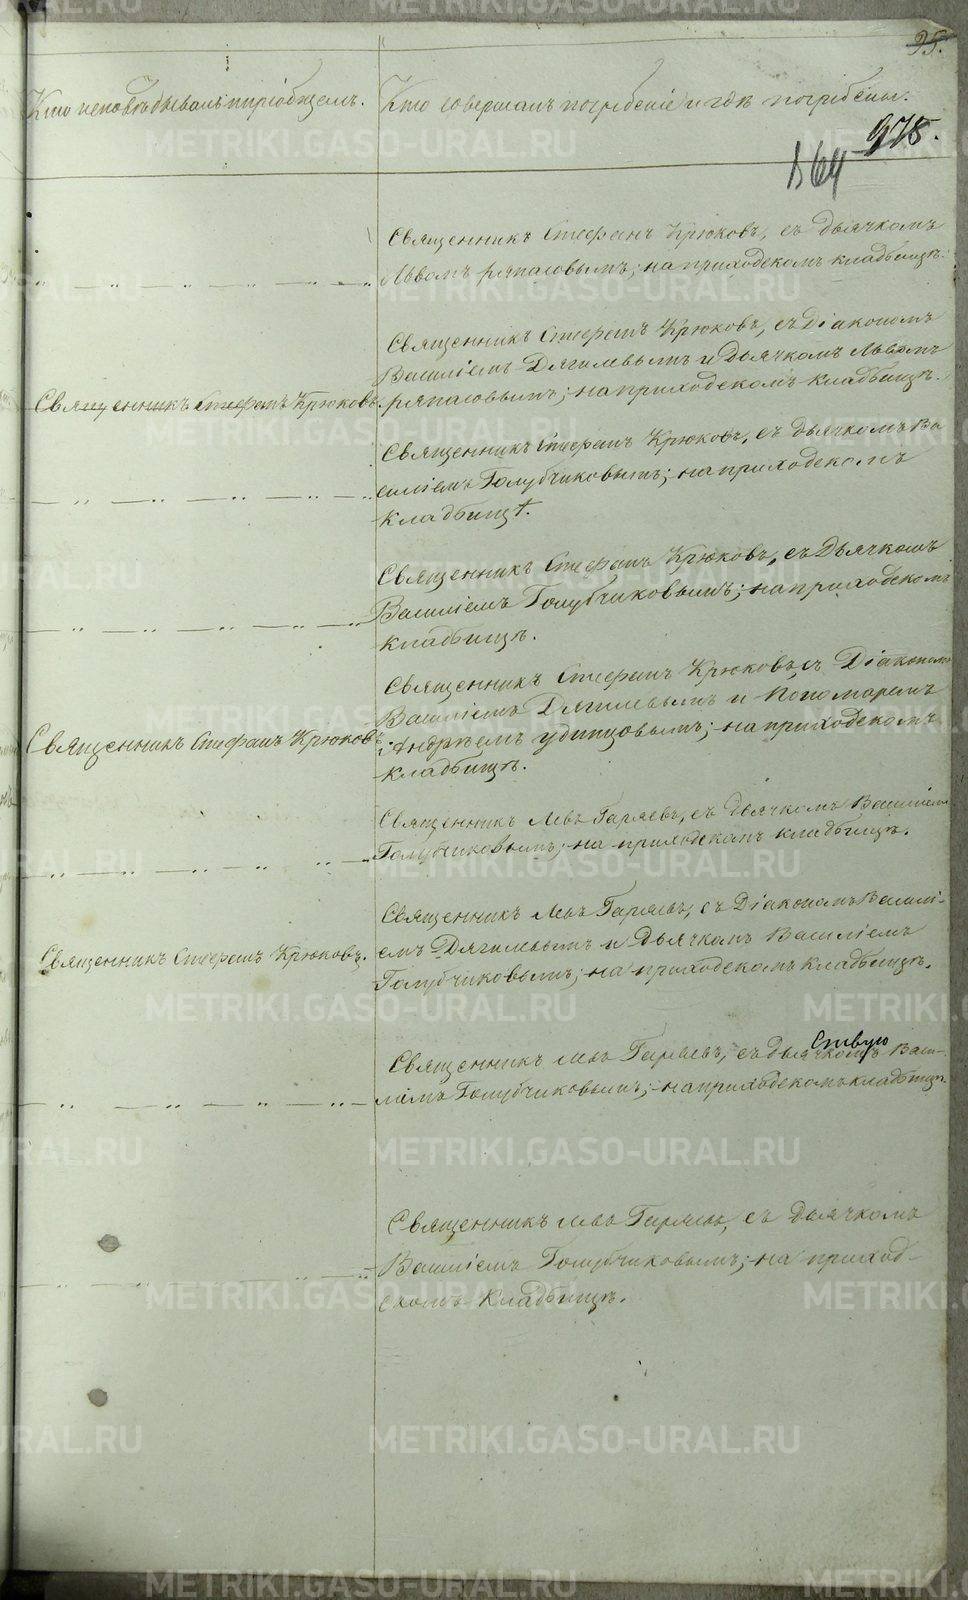 95.
Кто исповѣдывалъ и пріобщалъ.
Кто совершалъ погребеніе и гдѣ погребены.
975.
Священникъ Стефанъ Крюковъ, съ дьячкомъ
Львомъ; на приходскомъ кладбищѣ.
Священникъ Стефанъ Крюковъ, съ Діакономъ
Василіемъ Дягилевымъ и Дьячкомъ Львомъ
Священникъ Стефанъ Крюковъ.
; на приходскомъ кладбищѣ.
Священникъ Стефанъ Крюковъ, съ дьячкомъ Ва
силіемъ Голубчиковымъ; на приходскомъ
кладбищѣ.
Священникъ Стефанъ Крюковъ, съ Дьячкомъ
Василіемъ Голубчиковымъ; на приходскомъ
кладбищѣ.
Священникъ Стефанъ Крюковъ, съ Діакономъ
Василіемъ Дягилевымъ и Пономаремъ
Священникъ Стефанъ Крюковъ
Андреемъ Удинцовымъ; на приходскомъ
кладбищѣ.
Священникъ Левъ Гаряевъ, съ дьячкомъ Василіемъ
Голубчиковымъ; на приходскомъ кладбищѣ.
Священникъ Левъ Гаряевъ, съ Діакономъ Васили-
Священникъ Стефанъ Крюковъ.
емъ Дягилевымъ и Дьячкомъ Василіемъ
Голубчиковымъ; на приходскомъ кладбищѣ.
Священникъ Левъ Гаряевъ, съ дьячкомъ Васи-
ліемъ Голубчиковымъ; на приходскомъ кладбищѣ
Священникъ Левъ Гаряевъ, съ Дьячкомъ
Василіемъ Голубчиковымъ; на приход-
скомъ Кладбищѣ.
METRIKI.GASO-URAL.RU